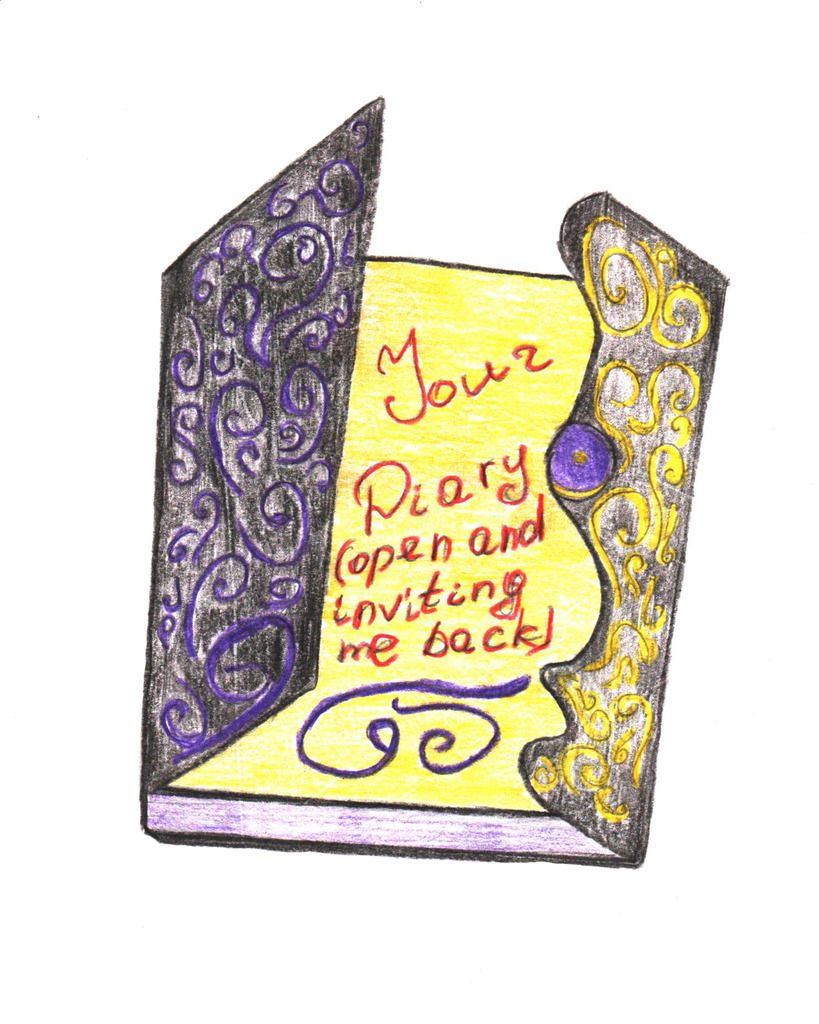 Your
Diary
(open and
inviting
me back)